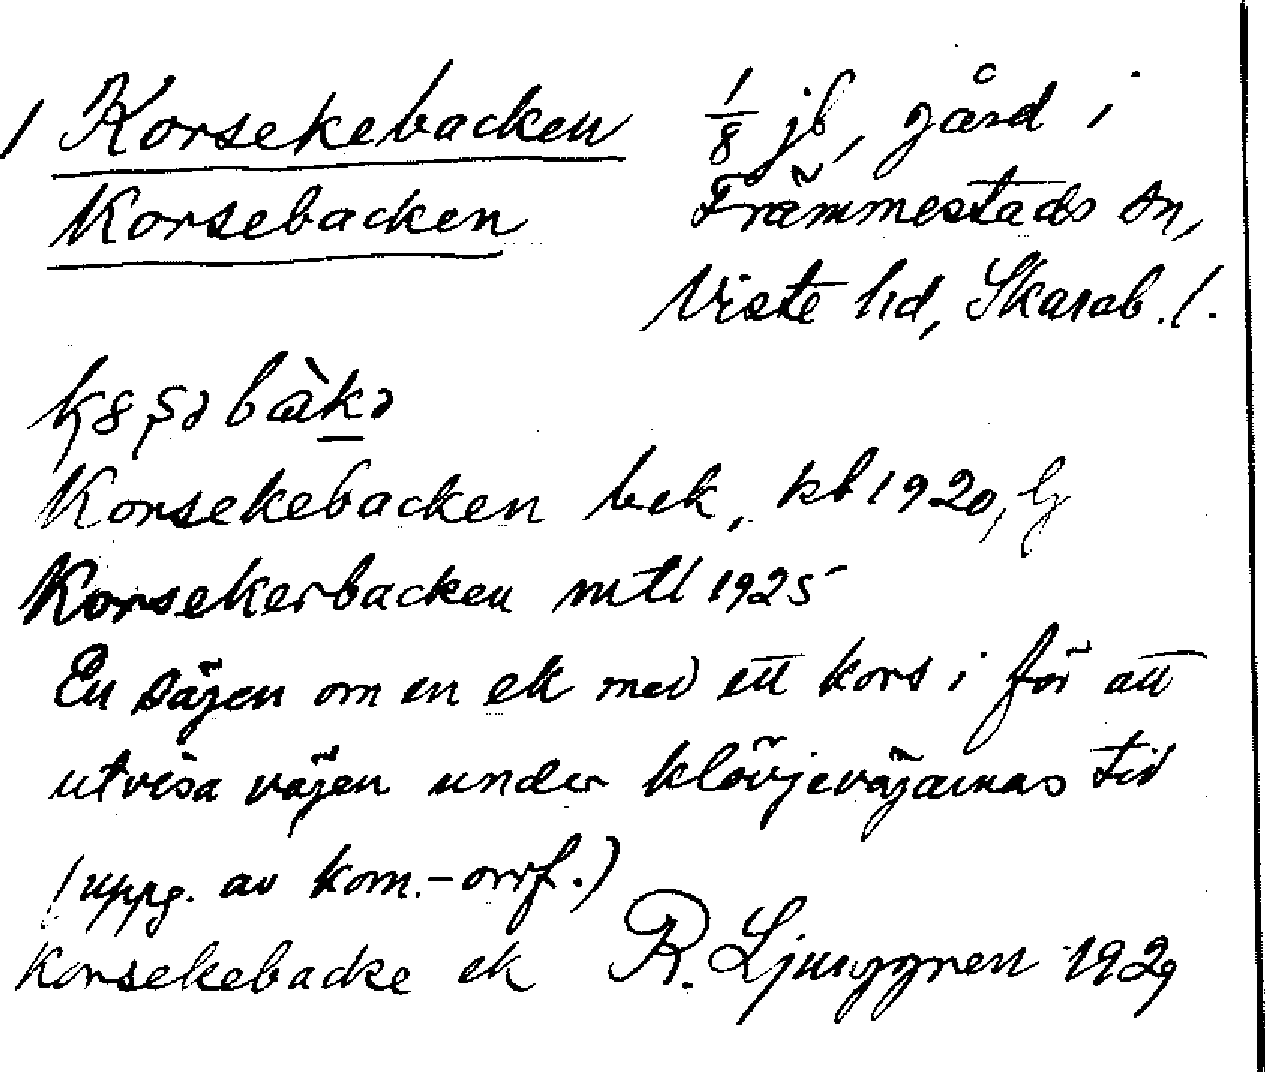 1 Korsekebacken 1/8 jb, gård i
Korsebacken Främmestads sn,
Viste hd, Skarab. l.
Korsekebacken bek, kb 1920, lj
Korsekerbacken mtl 1925
En sägen om en ek med ett kors i för att
utvisa vägen under klövjevägarnas tid
(uppg. av kom.-orrf.)
Korsekebacke ek R. Ljunggren 1929